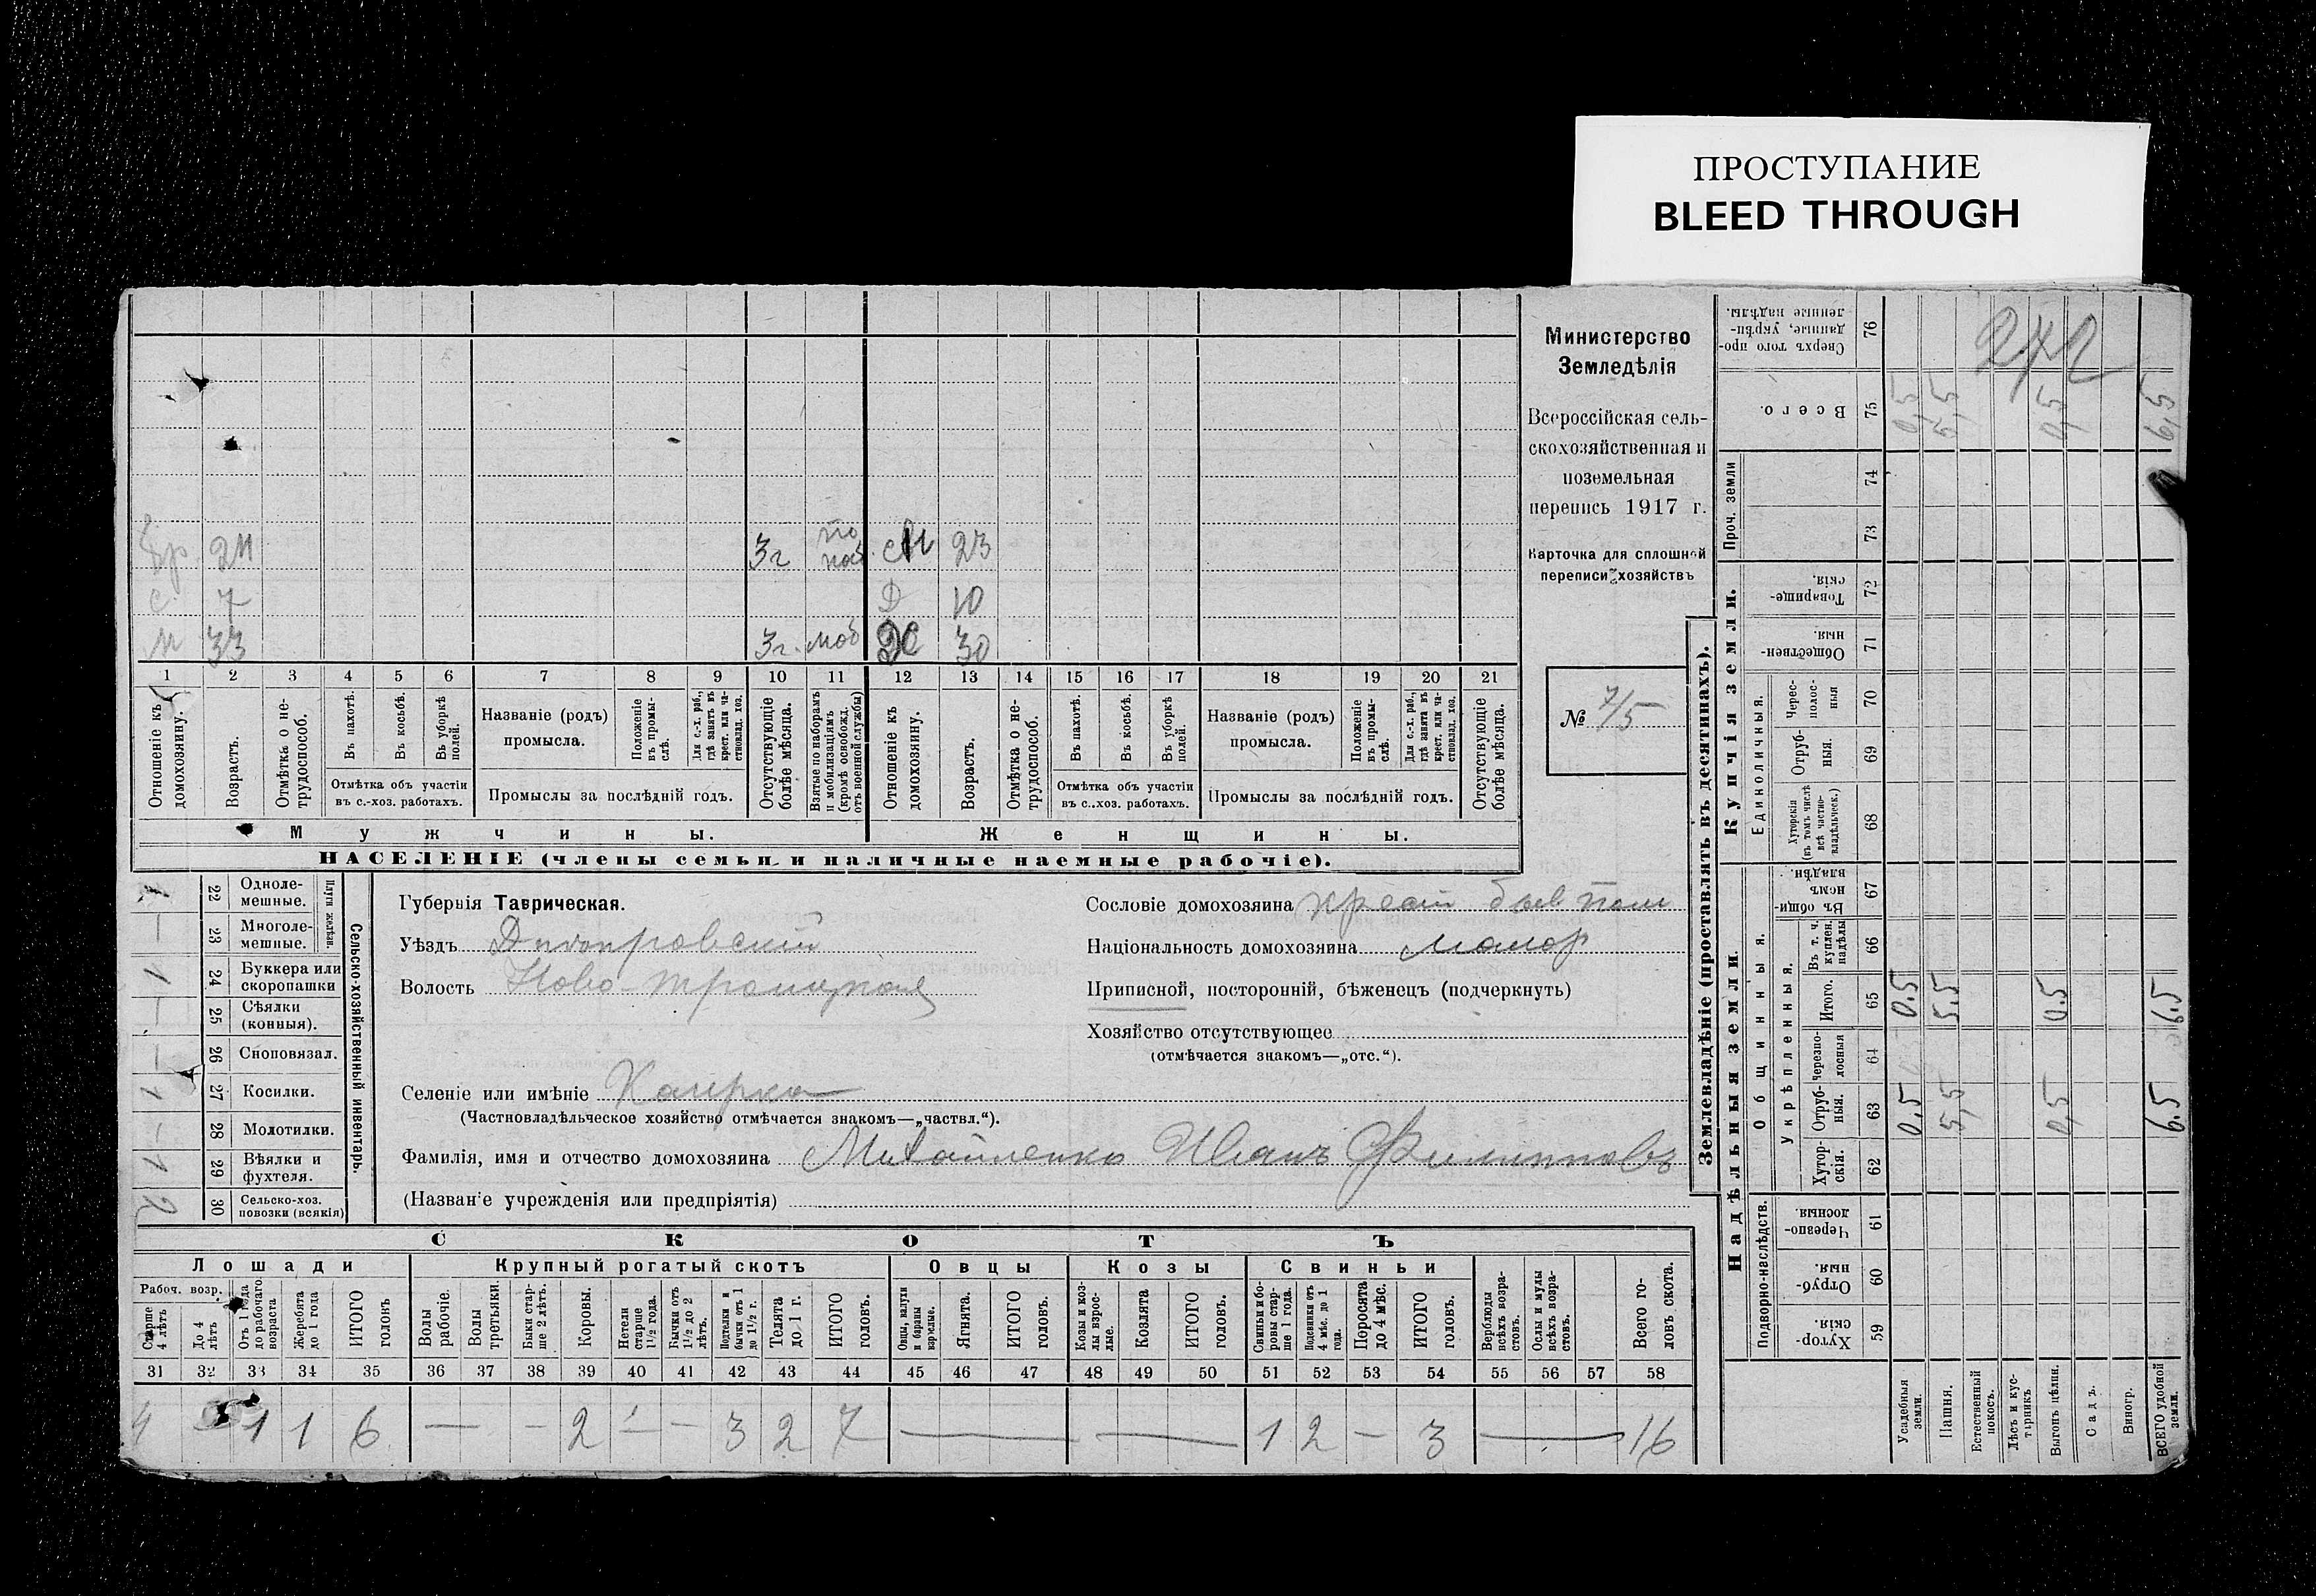 ПРОСТУПАНИЕ
BLEED THROUGH
Министерство
Земледѣлія
Всероссійская сель-
скохозяйственная и
поземельная
перепись 1917 г.
Карточка для сплошной
переписи хозяйствъ
№ 7/5
бр 24 3г по моб 23
с 7 Д 10
м 33 3г. моб 30
1 2 3 4 5 6 7 8 9 10 11 12 13 14 15 16 17 18 19 20 21
Отношеніе къ домохозяину.
Возрастъ.
Отмѣтка о не-трудоспособ.
Въ пахотѣ.
Въ косьбѣ.
Въ уборкѣ полей.
Отмѣтка объ участіи
въ с.-хоз. работахъ.
Названіе (родъ)
промысла.
Положеніе въ промы-слѣ.
Для с.-х. раб., гдѣ занятъ въ крест. или ча-стновлад. хоз.
Промыслы за послѣдній годъ.
Отсутствующіе болѣе мѣсяца.
Взятые по наборамъ и мобилизаціямъ (кромѣ освобожд. отъ военной службы)
Отношеніе къ домохозяину.
Возрастъ.
Отмѣтка о не-трудоспособ.
Въ пахотѣ.
Въ косьбѣ.
Въ уборкѣ полей.
Отмѣтка объ участіи
въ с.-хоз. работахъ.
Названіе (родъ)
промысла.
Положеніе въ промы-слѣ.
Для с.-х. раб., гдѣ занята въ крест. или ча-стновлад. хоз.
Промыслы за послѣдній годъ.
Отсутствующіе болѣе мѣсяца.
Мужчины.
Женщины.
НАСЕЛЕНІЕ (члены семьи и наличные наемные рабочіе).
Сельско-хозяйственный инвентарь.
Плуги желѣзн.
1 22 Одноле-мешные.
— 23 Многоле-мешные.
1 24 Буккера или скоропашки
— 25 Сѣялки (конныя).
— 26 Сноповязал.
1 27 Косилки.
— 28 Молотилки.
1 29 Вѣялки и фухтеля.
2 30 Сельско-хоз. повозки (всякія)
Губернія Таврическая.
Уѣздъ Днѣпровскій
Волость Ново-Троицкая
Селеніе или имѣніе Каирка
(Частновладѣльческое хозяйство отмѣчается знакомъ—„частвл.“).
Фамилія, имя и отчество домохозяина Михайленко Иванъ Филипповъ
(Названіе учрежденія или предпріятія)
Сословіе домохозяина крест быв пом
Національность домохозяина малор
Приписной, посторонній, бѣженецъ (подчеркнуть)
Хозяйство отсутствующее
(отмѣчается знакомъ—„отс.“).
СКОТЪ
Лошади
Крупный рогатый скотъ
Овцы
Козы
Свиньи
Рабоч. возр.
Старше 4 лѣтъ
До 4 лѣтъ
Отъ 1 года до рабочаго возраста
Жеребята до 1 года
ИТОГО головъ
Волы рабочіе.
Волы третьяки.
Быки стар-ше 2 лѣтъ.
Коровы.
Нетели старше 1½ года.
Бычки отъ 1½ до 2 лѣтъ.
Подтелки и бычки отъ 1 до 1½ г.
Телята до 1 г.
ИТОГО головъ.
Овцы, валухи и бараны взрослые.
Ягнята.
ИТОГО головъ.
Козы и коз-лы взрос-лые.
Козлята
ИТОГО головъ.
Свиньи и бо-ровы стар-ше 1 года.
Подсвинки отъ 4 мѣс. до 1 года.
Поросята до 4 мѣс.
ИТОГО головъ.
Верблюды всѣхъ возра-стовъ.
Ослы и мулы всѣхъ возра-стовъ.
Всего го-ловъ скота.
31 32 33 34 35 36 37 38 39 40 41 42 43 44 45 46 47 48 49 50 51 52 53 54 55 56 57 58
4 1 1 6 — — 2 — — 3 2 7 — — 1 2 — 3 — 16
Землевладѣніе (проставлять въ десятинахъ).
Купчія земли.
Надѣльныя земли.
Сверхъ того про-данные, укрѣп-ленные надѣлы. 76
Всего. 75
Проч. земли 74
73
Товарище-скія. 72
Обществен-ныя. 71
Единоличныя.
Черес-полос-ныя 70
Отруб-ныя. 69
Хуторскія (въ томъ числѣ всѣ частно-владѣльческ.) 68
Общинныя.
Въ общин-номъ владѣн. 67
Укрѣпленныя.
Въ т. ч. куплен. надѣлы 66
Итого. 65
Черезпо-лосныя 64
Отруб-ныя. 63
Хутор-скія. 62
Подворно-наслѣдств.
Черезпо-лосныя. 61
Отруб-ныя. 60
Хутор-скія. 59
Усадебныя земли.
Пашня.
Естественный покосъ.
Лѣсъ и кус-тарникъ
Выгонъ цѣлин.
Садъ.
Виногр.
ВСЕГО удобной земли.
242
0,5 5,5 0,5 6,5
0.5 5.5 0.5 6.5
0.5 5,5 0,5 6.5